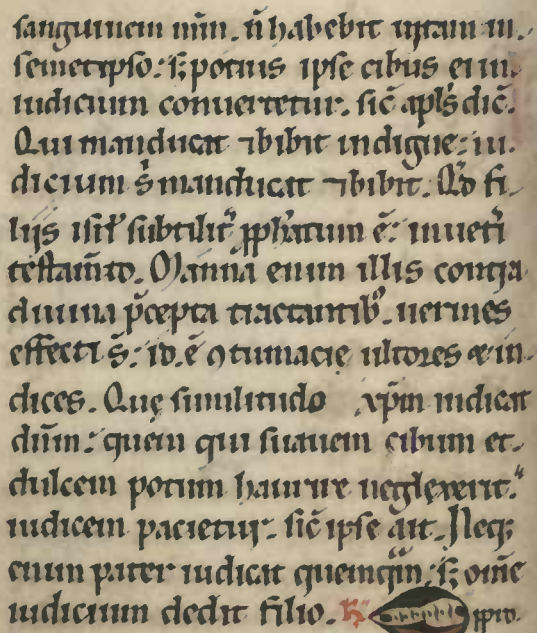 sanguinem mm̄. n̄ habebit uitam in
semetipso. sꝫ potius ipse cibus ei in
iudicium conuertetur. sic̄ apl̄s dic̄.
Qui manducat ⁊ bibit indigne. iu
dicium s̄ manducat ⁊ bibit. Qd̄ fi
lijs isrl̄ subtilit̄ ꝓph̄atum ē. in uet̄i
testam̄to. Manna enim illis cont̄a
diuina p̄cepta tractantib᷒. uermes
effecti s̄. id. ē ꝯtumacię ultores ⁊ in
dices. Quę similitudo xp̄m indicat
dn̄m. quem qui suauem cibum et
dulcem potum haurire neglexerit.
iudicem pacietur. sic̄ ipse ait. Neqꝫ
enim pater iudicat quemq̄m. sꝫ om̄e
iudicium dedit filio.